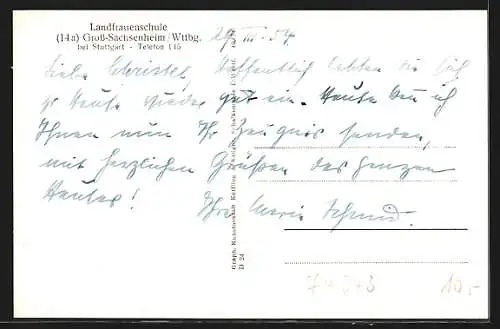 Landfrauenschule
(14a) Groß-Sachsenheim/Wttbg.
bei Stuttgart - Telefon 116
29. III. 54
Liebe Christel, Hoffentlich lebten Sie sich
zu Hause wieder gut ein. Heute kann ich
Ihnen nun Ihr Zeugnis senden,
mit herzlichen Grüßen des ganzen
Hauses!
Ihre Maria Schmid.
Graph. Kunstanstalt
D 24
10,-